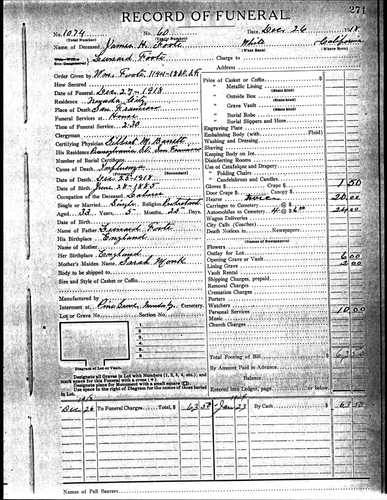 271
RECORD OF FUNERAL.
No. 1074 No. 60 Date, Dec 26 1918
(Total Number) (Yearly Number)
Name of Deceased James H. Foote White California
(What Race) (Where Born)
Leonard Foote Charge to
Address
Order Given by Wm. Foote
Price of Casket or Coffin
How Secured
" Metalic Lining
Date of Funeral Dec 27-1918
" Outside Box
Residence Nevada City
" Grave Vault
Place of Death San Francisco
" Burial Robe
Services at Home
" Burial Slippers and Hose
Time of Service 2:30
Engraving Plate
Clergyman
Embalming Body (with Fluid)
Certifying Physician Gilbert M. Barrett
Washing and Dressing
His Residence San Francisco
Shaving
Number of Burial Certificate
Keeping Body on Ice
Cause of Death Influenza
Disinfecting Rooms
(Primary) (Secondary)
Use of Catafalque and Drapery
Date of Death Dec 23-1918
" Folding Chairs
Date of Birth June 28-1885
" Candelabrum and Candles
Occupation of the Deceased Laborer
Gloves $ Crape $ 1.50
Single or Married Single Religion Protestant
Door Crape $ Canopy $
Aged 33 Years 5 Months 25 Days
Hearse 20.00
Date of Birth
Carriages to Cemetery @ $
Name of Father Leonard Foote
Automobiles to Cemetery 4 @ $6.00 24.00
His Birthplace England
Wagon Deliveries
Name of Mother
City Calls (Coaches)
Her Birthplace England
Death Notices in Newspapers
Mother's Maiden Name Sarah Monk
(Names of Newspapers)
Body to be shipped to
Flowers
Size and Style of Casket or Coffin
Outlay for Lot
Opening Grave or Vault 6.00
Lining Grave 2.00
Vault Rental
Shipping Charges, prepaid
Manufactured by
Removal Charges
Interment at Pine Grove, Cemetery.
Cremation Charges
Lot or Grave No. Section No.
Porters
Watchers
Personal Services 10.00
Music
Church Charges
1
2
3
4
5
6
Diagram of Lot or Vault.
Total Footing of Bill
By Amount Paid in Advance
Balance
Designate all Graves in Lot with Numbers (1, 2, 3, 4, etc.), and
mark space for this Funeral with a cross (+).
Designate place for Monument with a small square
Use space in the right of Diagram for names of those buried
in Lot.
Entered into Ledger, page or below.
Dec 26 To Funeral Charges Total, $ 63.50 Jan 23 By Cash 63 50
Names of Pall Bearers